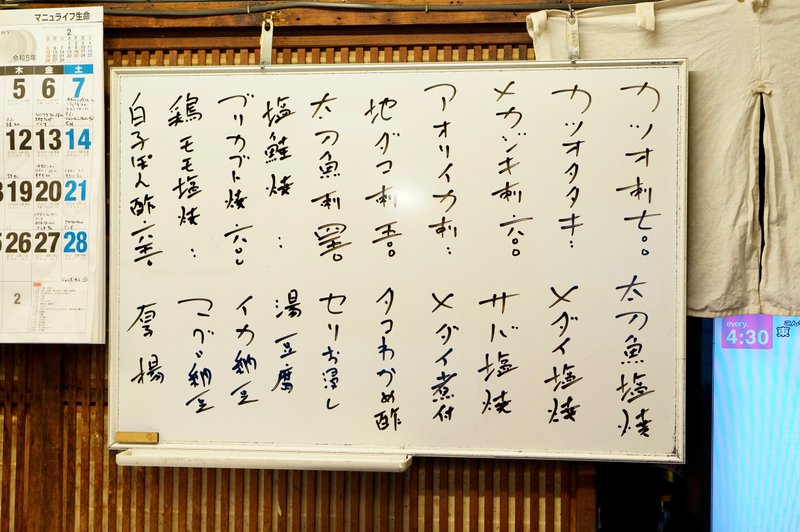 カツオ刺 七〇〇
カツオタタキ 〃
メカジキ刺 六〇〇
アオリイカ刺 〃
地ダコ刺 五〇〇
太刀魚刺
塩鮭焼 〃
ブリカブト焼 六〇〇
鶏モモ塩焼 〃
白子ぽん酢
太刀魚塩焼
メダイ塩焼
サバ塩焼
メダイ煮付
タコわかめ酢
セリお浸し
湯豆腐
イカ納豆
マグロ納豆
厚揚
マニュライフ生命
令和5年
2
木 金 土
5 6 7
12 13 14
19 20 21
26 27 28
2
every.
4:30
東